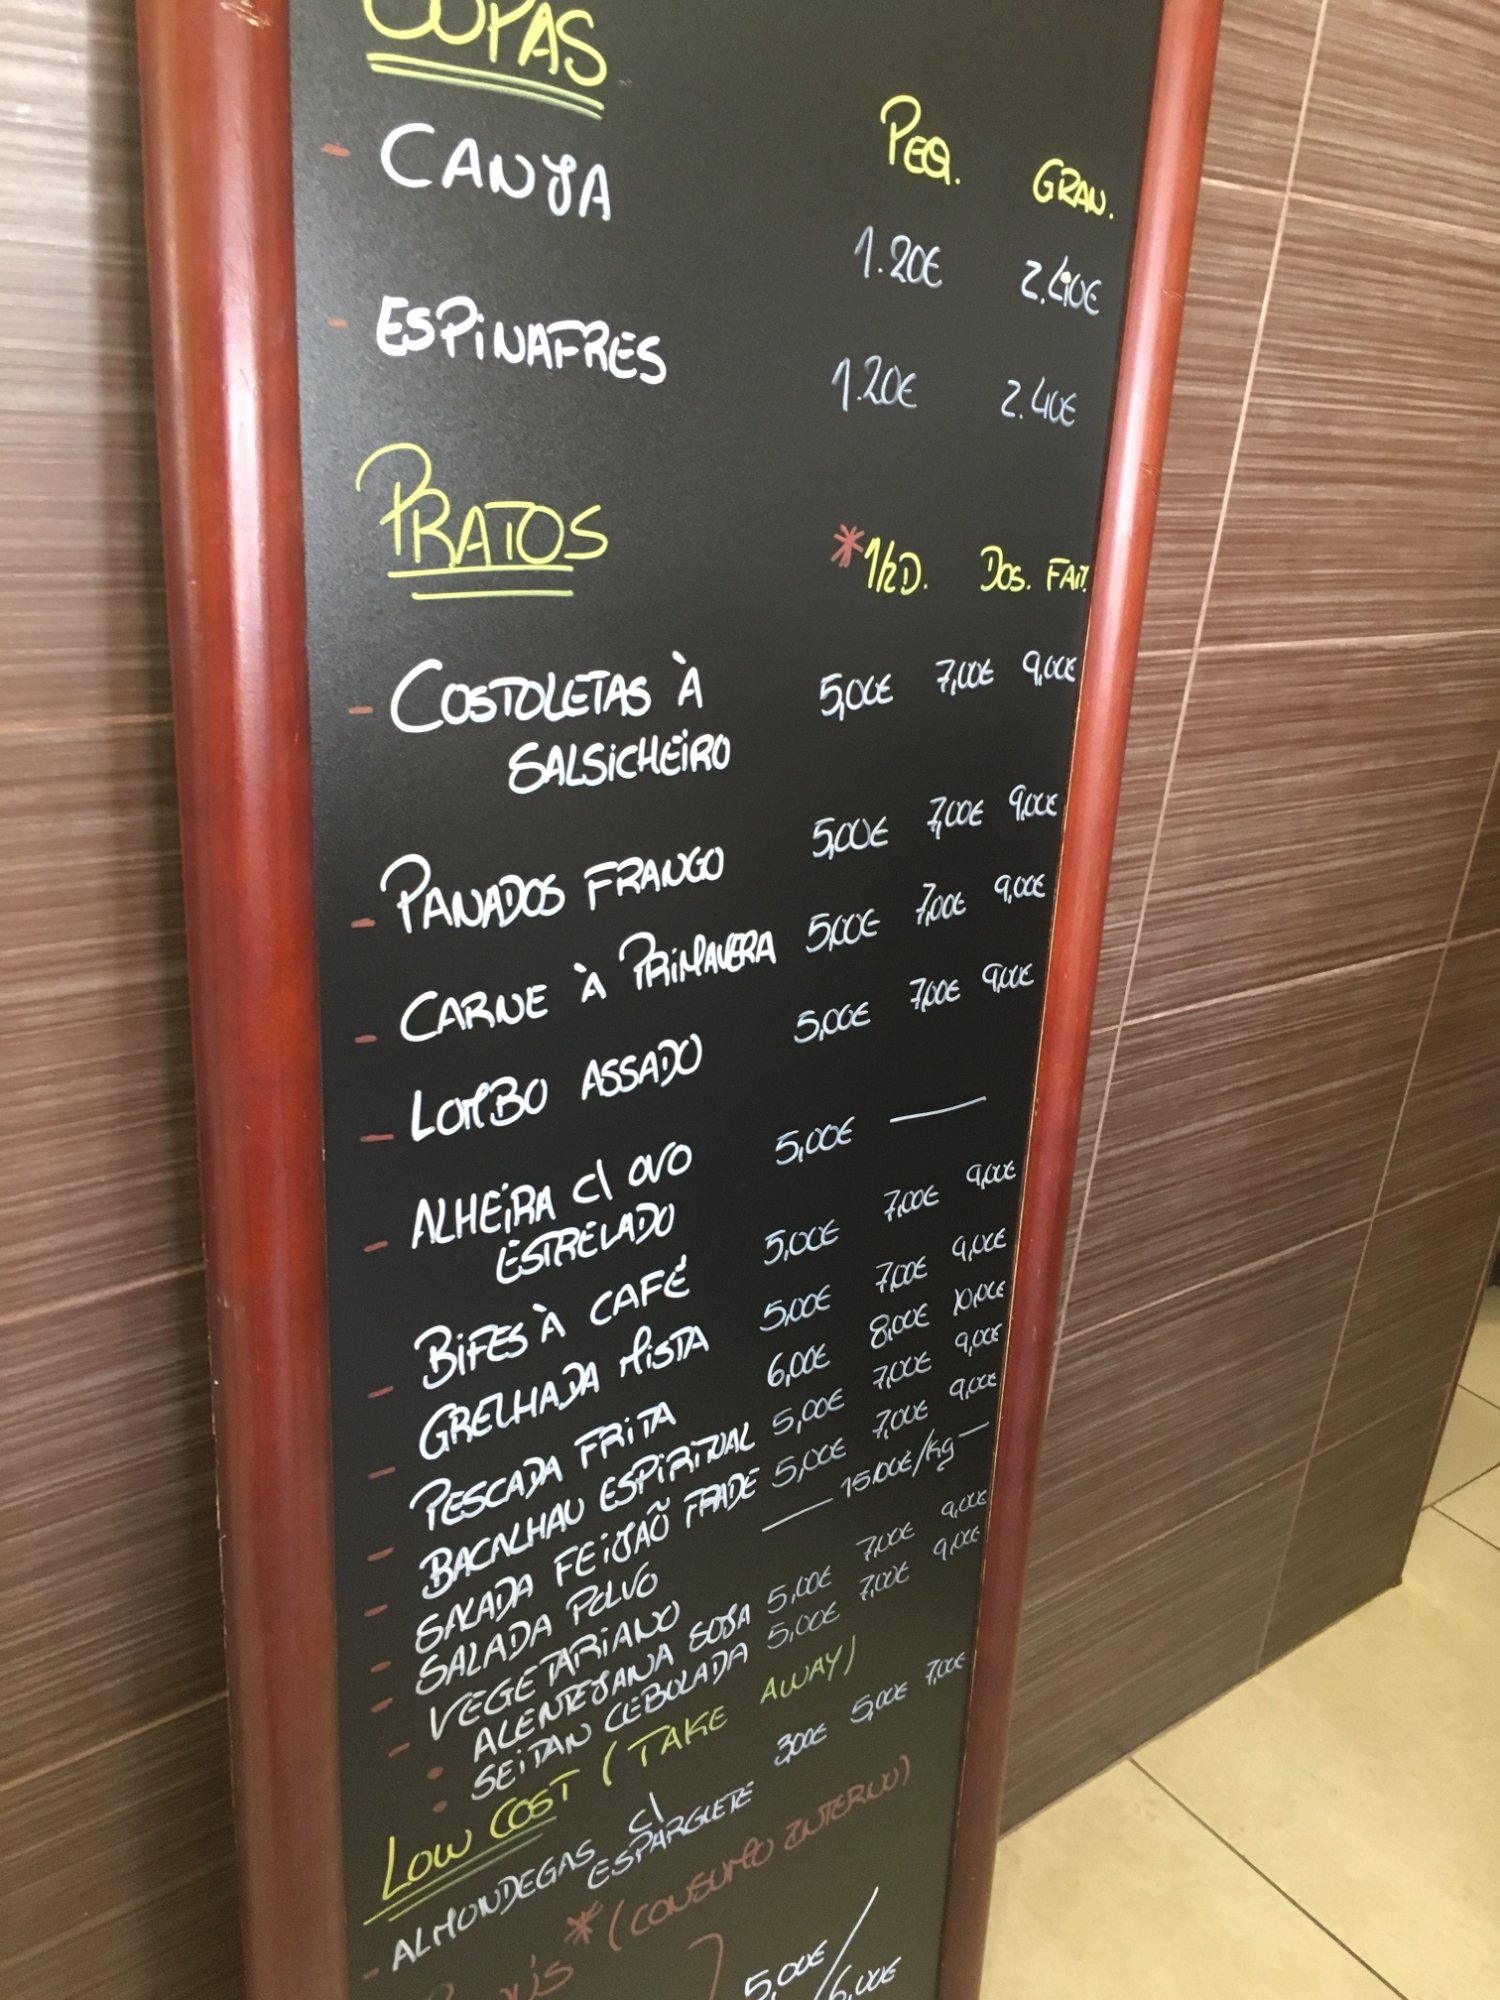 SOPAS
PEQ. GRAN.
- CANJA 1.20€ 2.40€
- ESPINAFRES 1.20€ 2.40€
PRATOS *1/2D. DOS. FAT.
- COSTOLETAS À 5,00€ 7,00€ 9,00€
SALSICHEIRO
- PANADOS FRANGO 5,00€ 7,00€ 9,00€
- CARNE À PRIMAVERA 5,00€ 7,00€ 9,00€
- LOMBO ASSADO 5,00€ 7,00€ 9,00€
- ALHEIRA C/ OVO 5,00€ —
ESTRELADO
- BIFES À CAFÉ 5,00€ 7,00€ 9,00€
- GRELHADA MISTA 5,00€ 7,00€ 9,00€
- PESCADA FRITA 6,00€ 8,00€ 10,00€
- BACALHAU ESPIRITUAL 5,00€ 7,00€ 9,00€
- SALADA FEIJAÕ FRADE 5,00€ 7,00€ 9,00€
- SALADA POLVO — 15.00€/Kg —
- VEGETARIANO
• ALENTEJANA SOJA 5,00€ 7,00€ 9,00€
• SEITAN CEBOLADA 5,00€ 7,00€ 9,00€
LOW COST (TAKE AWAY)
- ALMONDEGAS C/
ESPARGUETE 3,00€ 5,00€ 7,00€
*(CONSUMO INTERNO)
5,00€/
6,00€